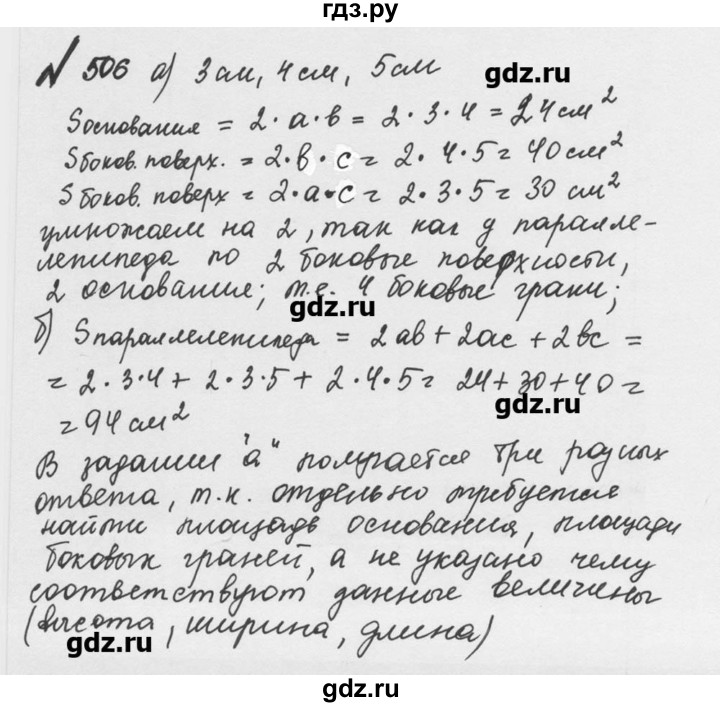 гдз.ру
№ 506 а) 3 см, 4 см, 5 см
gdz.ru
Sоснования = 2·а·в = 2·3·4 = 24 см²
Sбоков. поверх. = 2·в·с = 2·4·5 = 40 см²
Sбоков. поверх = 2·а·с = 2·3·5 = 30 см²
умножаем на 2, так как у паралле-
лепипеда по 2 боковые поверхности,
2 основание; т.е. 4 боковые грани;
gdz.ru
б) Sпараллелепипеда = 2ав + 2ас + 2вс =
= 2·3·4 + 2·3·5 + 2·4·5 = 24 + 30 + 40 =
gdz.ru
= 94 см²
В задании "а" получается три разных
ответа, т.к. отдельно требуется
найти площадь основания, площади
боковых граней, а не указано чему
соответствуют данные величины
(высота, ширина, длина)
gdz.ru
gdz.ru